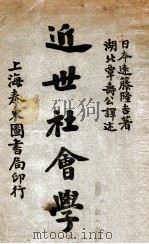 日本遠藤隆吉著
湖北覃壽公譯述
近世社會學
上海泰東圖書局印行